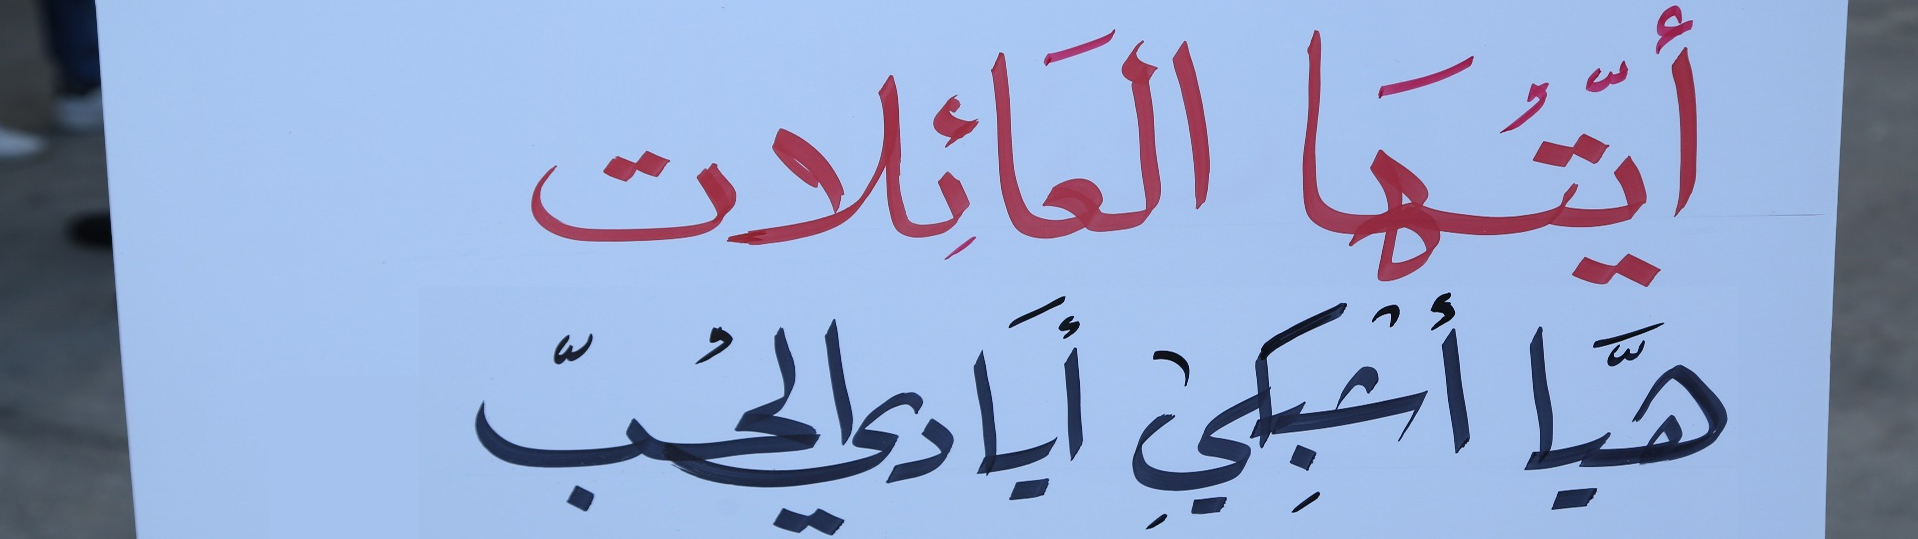 أيّتُهَا العَائِلات
هَيَّا أشْبِكِيْ أيَادي الحُبّ